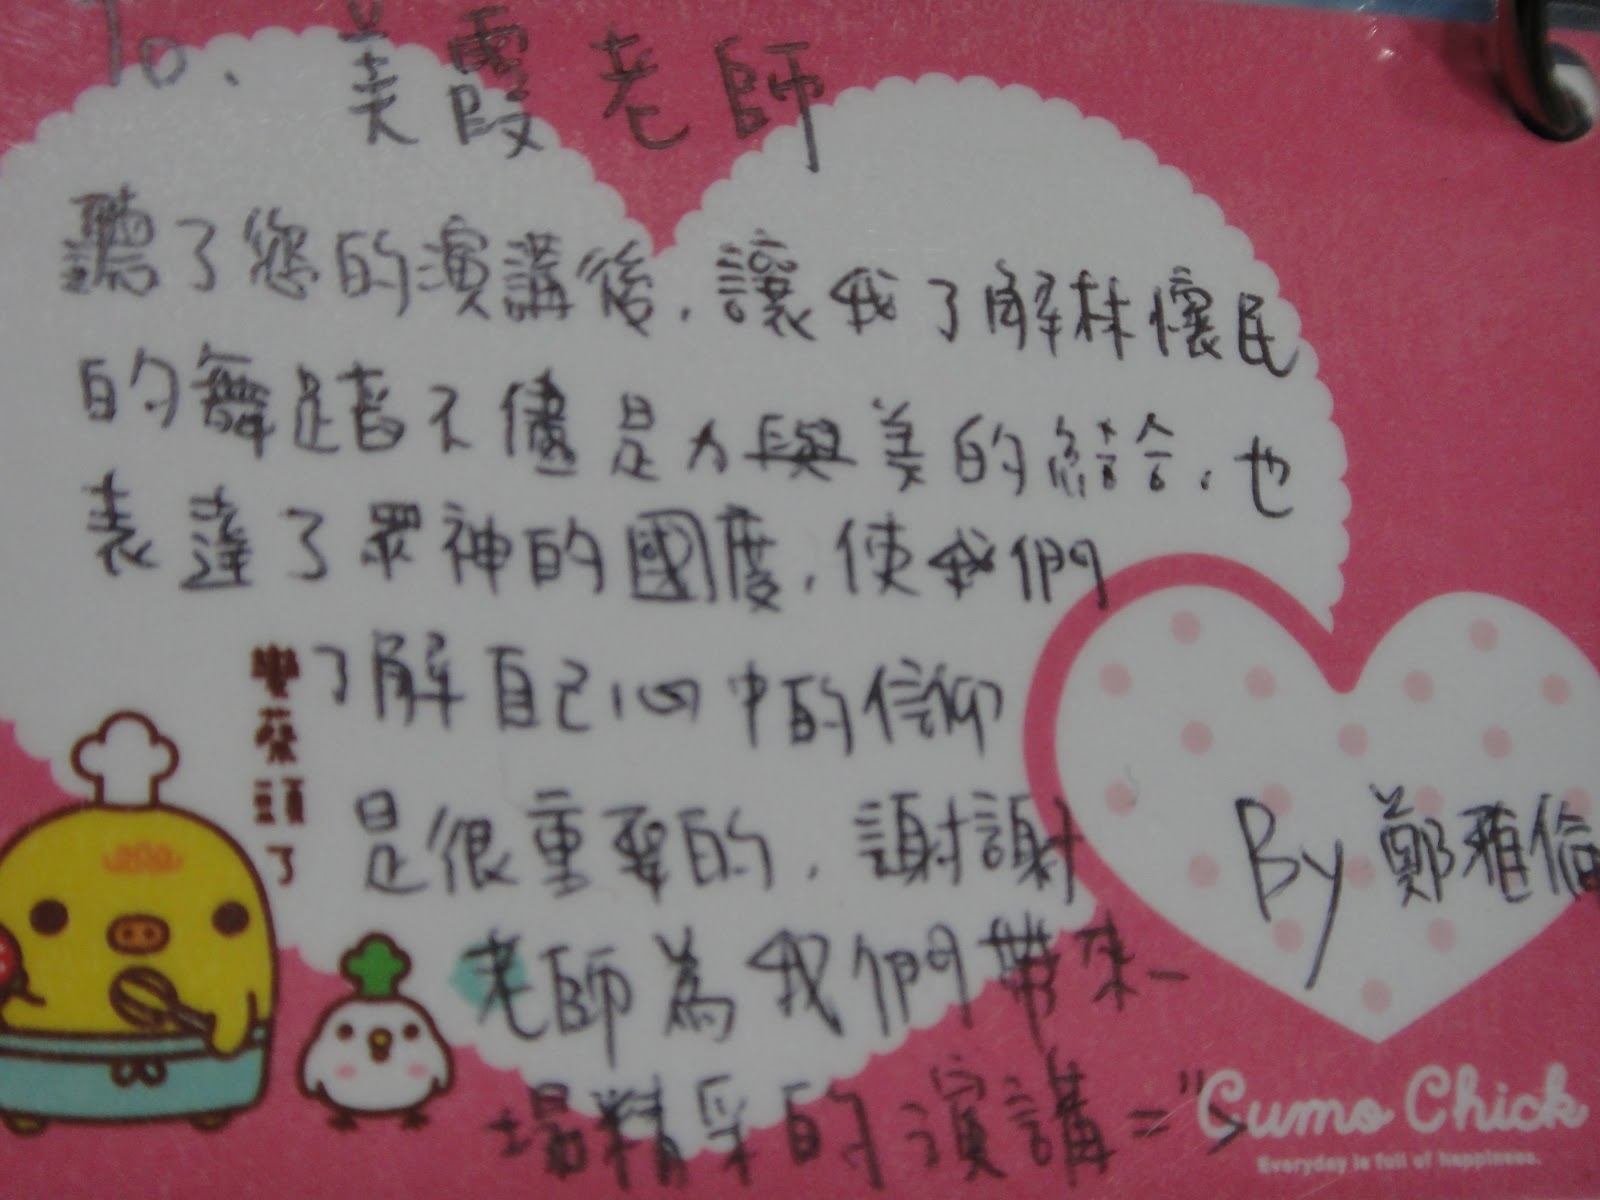 To. 美霞老師
聽了您的演講後,讓我了解林懷民
的舞蹈不儘是力與美的結合,也
表達了眾神的國度,使我們
了解自己心中的信仰
是很重要的,謝謝
老師為我們帶來一
場精采的演講=">
變菜頭了
By 鄭雅倫
Cumo Chick
Everyday is full of happiness.